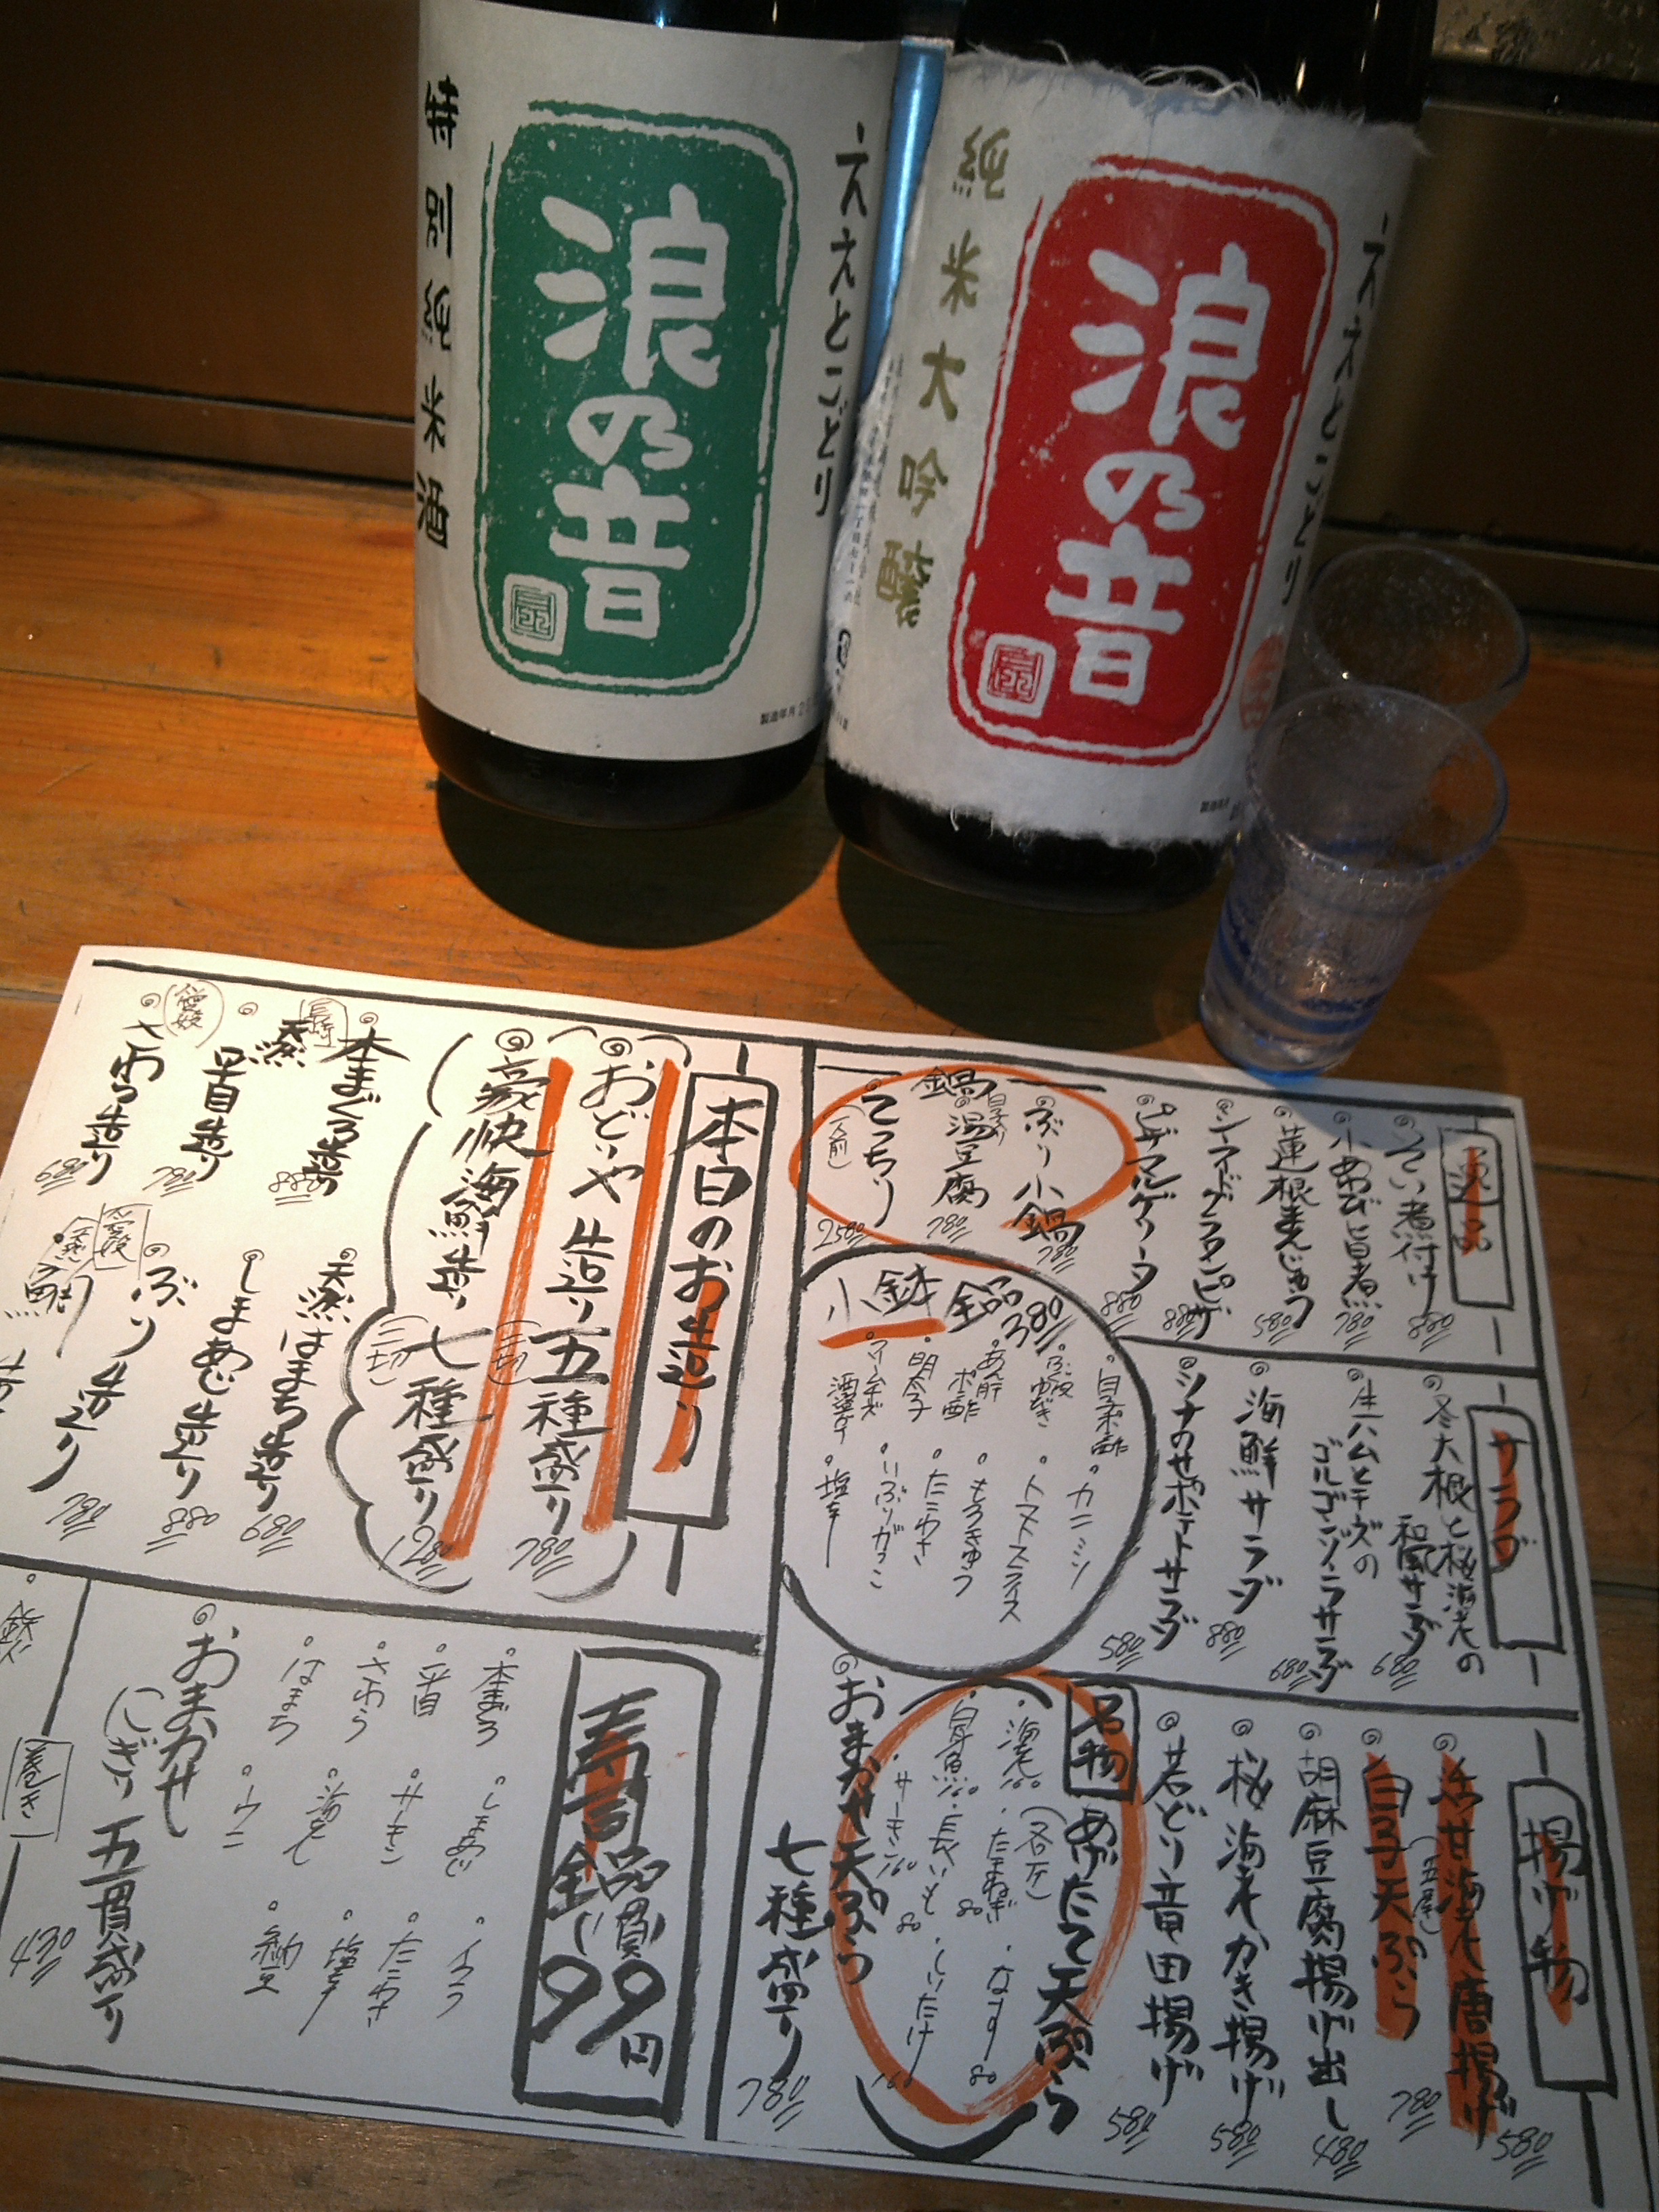 特別純米酒
浪の音
ええとこどり
純米大吟醸
浪の音
ええとこどり
製造年月
逸品
えい煮付け 880
小あわび旨煮 780
蓮根まんじゅう 580
シーフードグラタンピザ 880
ピザマルゲリータ 880
鍋
ぶり小鍋 780
白子入り
湯豆腐 780
てっちり
(一人前)
2580
小鉢
全品380
白子ポン酢
ふぐ皮ゆびき
あん肝ポン酢
明太子
クリームチーズ酒盗がけ
カニミソ
トマトスライス
もろきゅう
たこわさ
いぶりがっこ
塩辛
サラダ
冬大根と桜海老の
和風サラダ 680
生ハムとチーズの
ゴルゴンゾーラサラダ 680
海鮮サラダ 880
ツナのせポテトサラダ 580
揚げ物
甘海老唐揚げ
(五尾)
580
白子天ぷら 780
胡麻豆腐揚げ出し 480
桜海老かき揚げ 580
若どり竜田揚げ 580
名物
あげたて天ぷら
(各一ヶ)
海老 160
たまねぎ 80
なす 80
白身魚 160
長いも 80
しいたけ 160
サーモン 160
おまかせ天ぷら
七種盛り 780
本日のお造り
おどいや造り五種盛り
(二切)
780
豪快海鮮造り七種盛り
(三切)
1280
長崎
本まぐろ造り 880
天然はまち造り 680
天然
旨造り 780
しまあじ造り 880
愛媛
さわら造り 680
ぶり造り 780
愛媛
天然
造り
寿司
全品一貫99円
本まぐろ
しまあじ
イクラ
サーモン
たこわさ
さわら
海老
塩辛
はまち
ウニ
納豆
おまかせ
にぎり五貫盛り
巻き
430